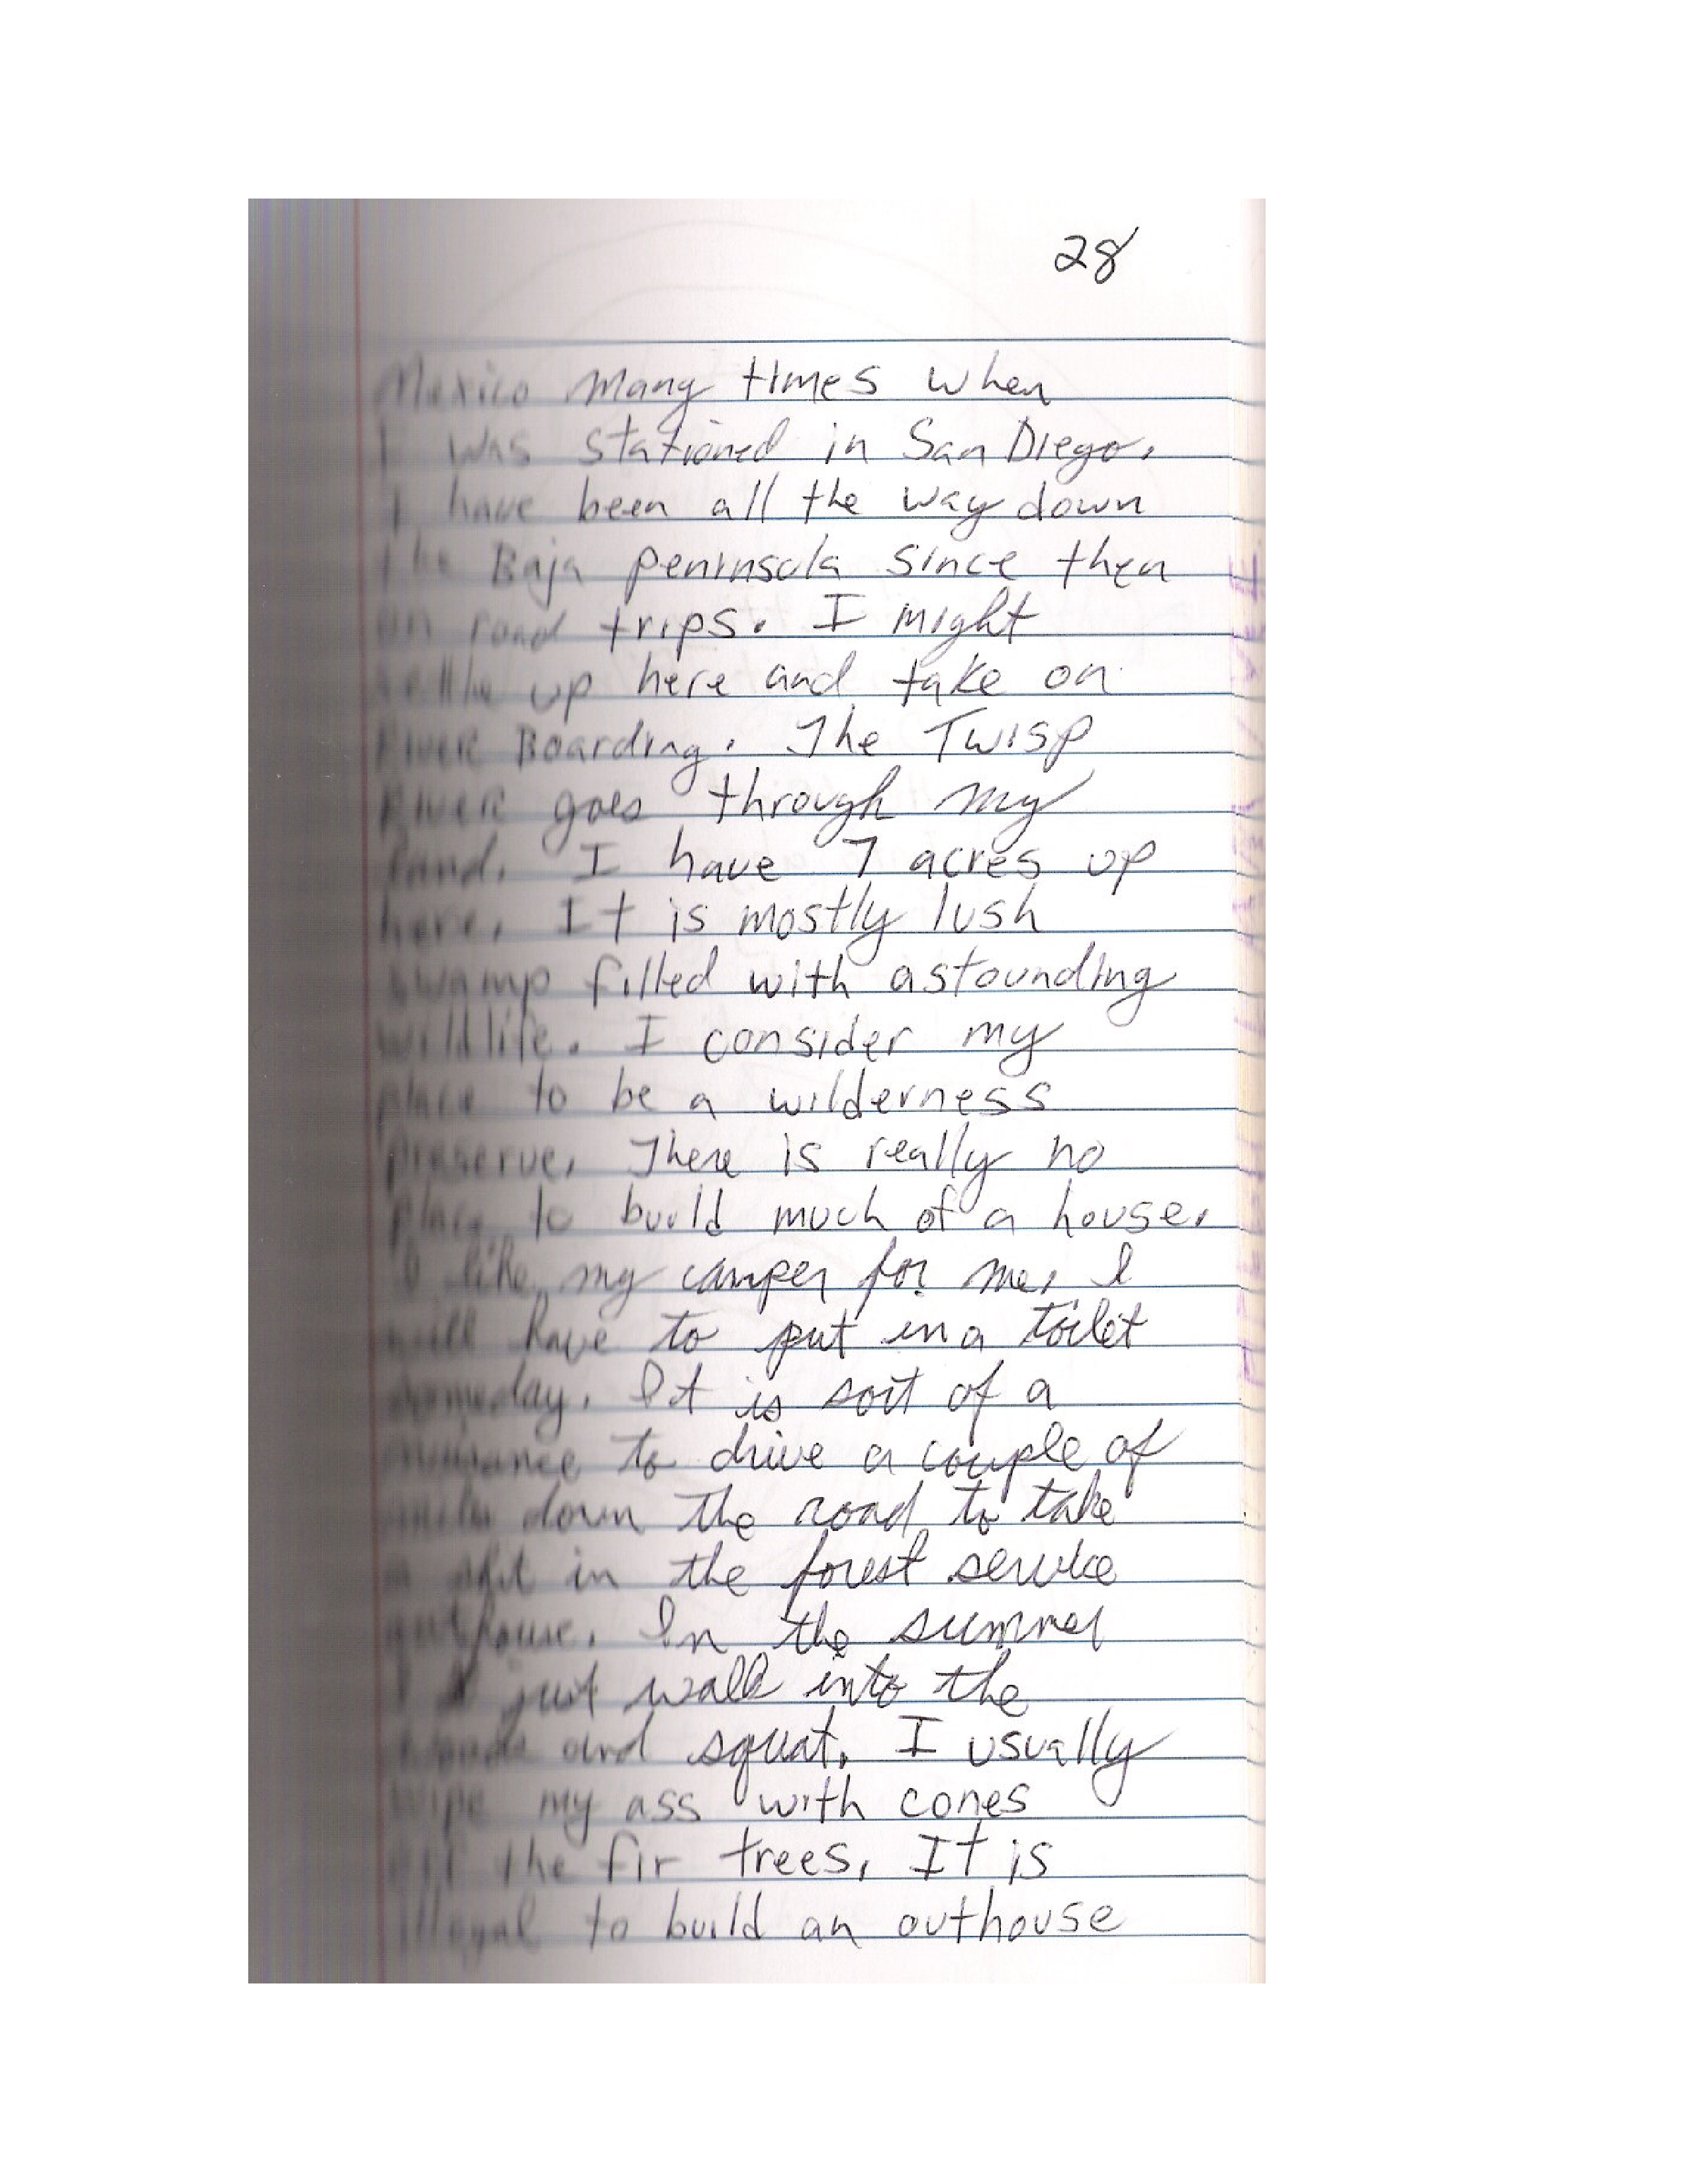 28
Mexico Many times when
I was stationed in San Diego.
I have been all the way down
the Baja peninsula since then
on road trips. I might
settle up here and take on
River Boarding. The Twisp
River goes through my
land. I have 7 acres up
here. It is mostly lush
swamp filled with astounding
wildlife. I consider my
place to be a wilderness
preserve. There is really no
place to build much of a house.
I like my camper for me. I
will have to put in a toilet
someday. It is sort of a
nuisance to drive a couple of
miles down the road to take
a in the forest service
outhouse. In the summer
I just walk into the
woods and squat. I usually
wipe my ass with cones
off the fir trees. It is
illegal to build an outhouse